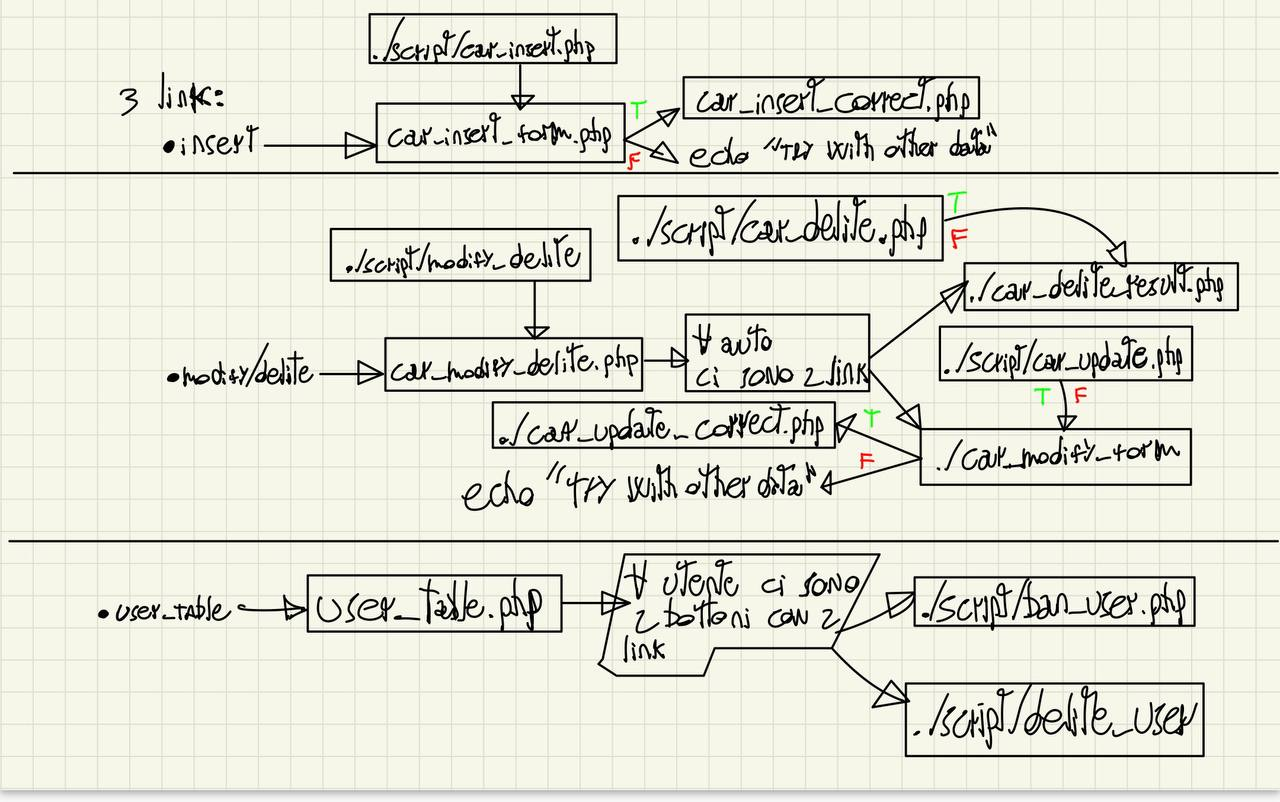 ./script/car_insert.php
3 link:
•insert
car_insert_form.php
T
F
car_insert_correct.php
echo "Try with other data"
./script/car_delite.php
T
F
./script/modify_delite
./car_delite_result.php
•modify/delite
car_modify_delite.php
∀ auto
ci sono 2 link
./script/car_update.php
T
F
./car_update_correct.php
T
F
./car_modify_form
echo "Try with other data"
•user_table
user_table.php
∀ utente ci sono
2 bottoni con 2
link
./script/ban_user.php
./script/delite_user